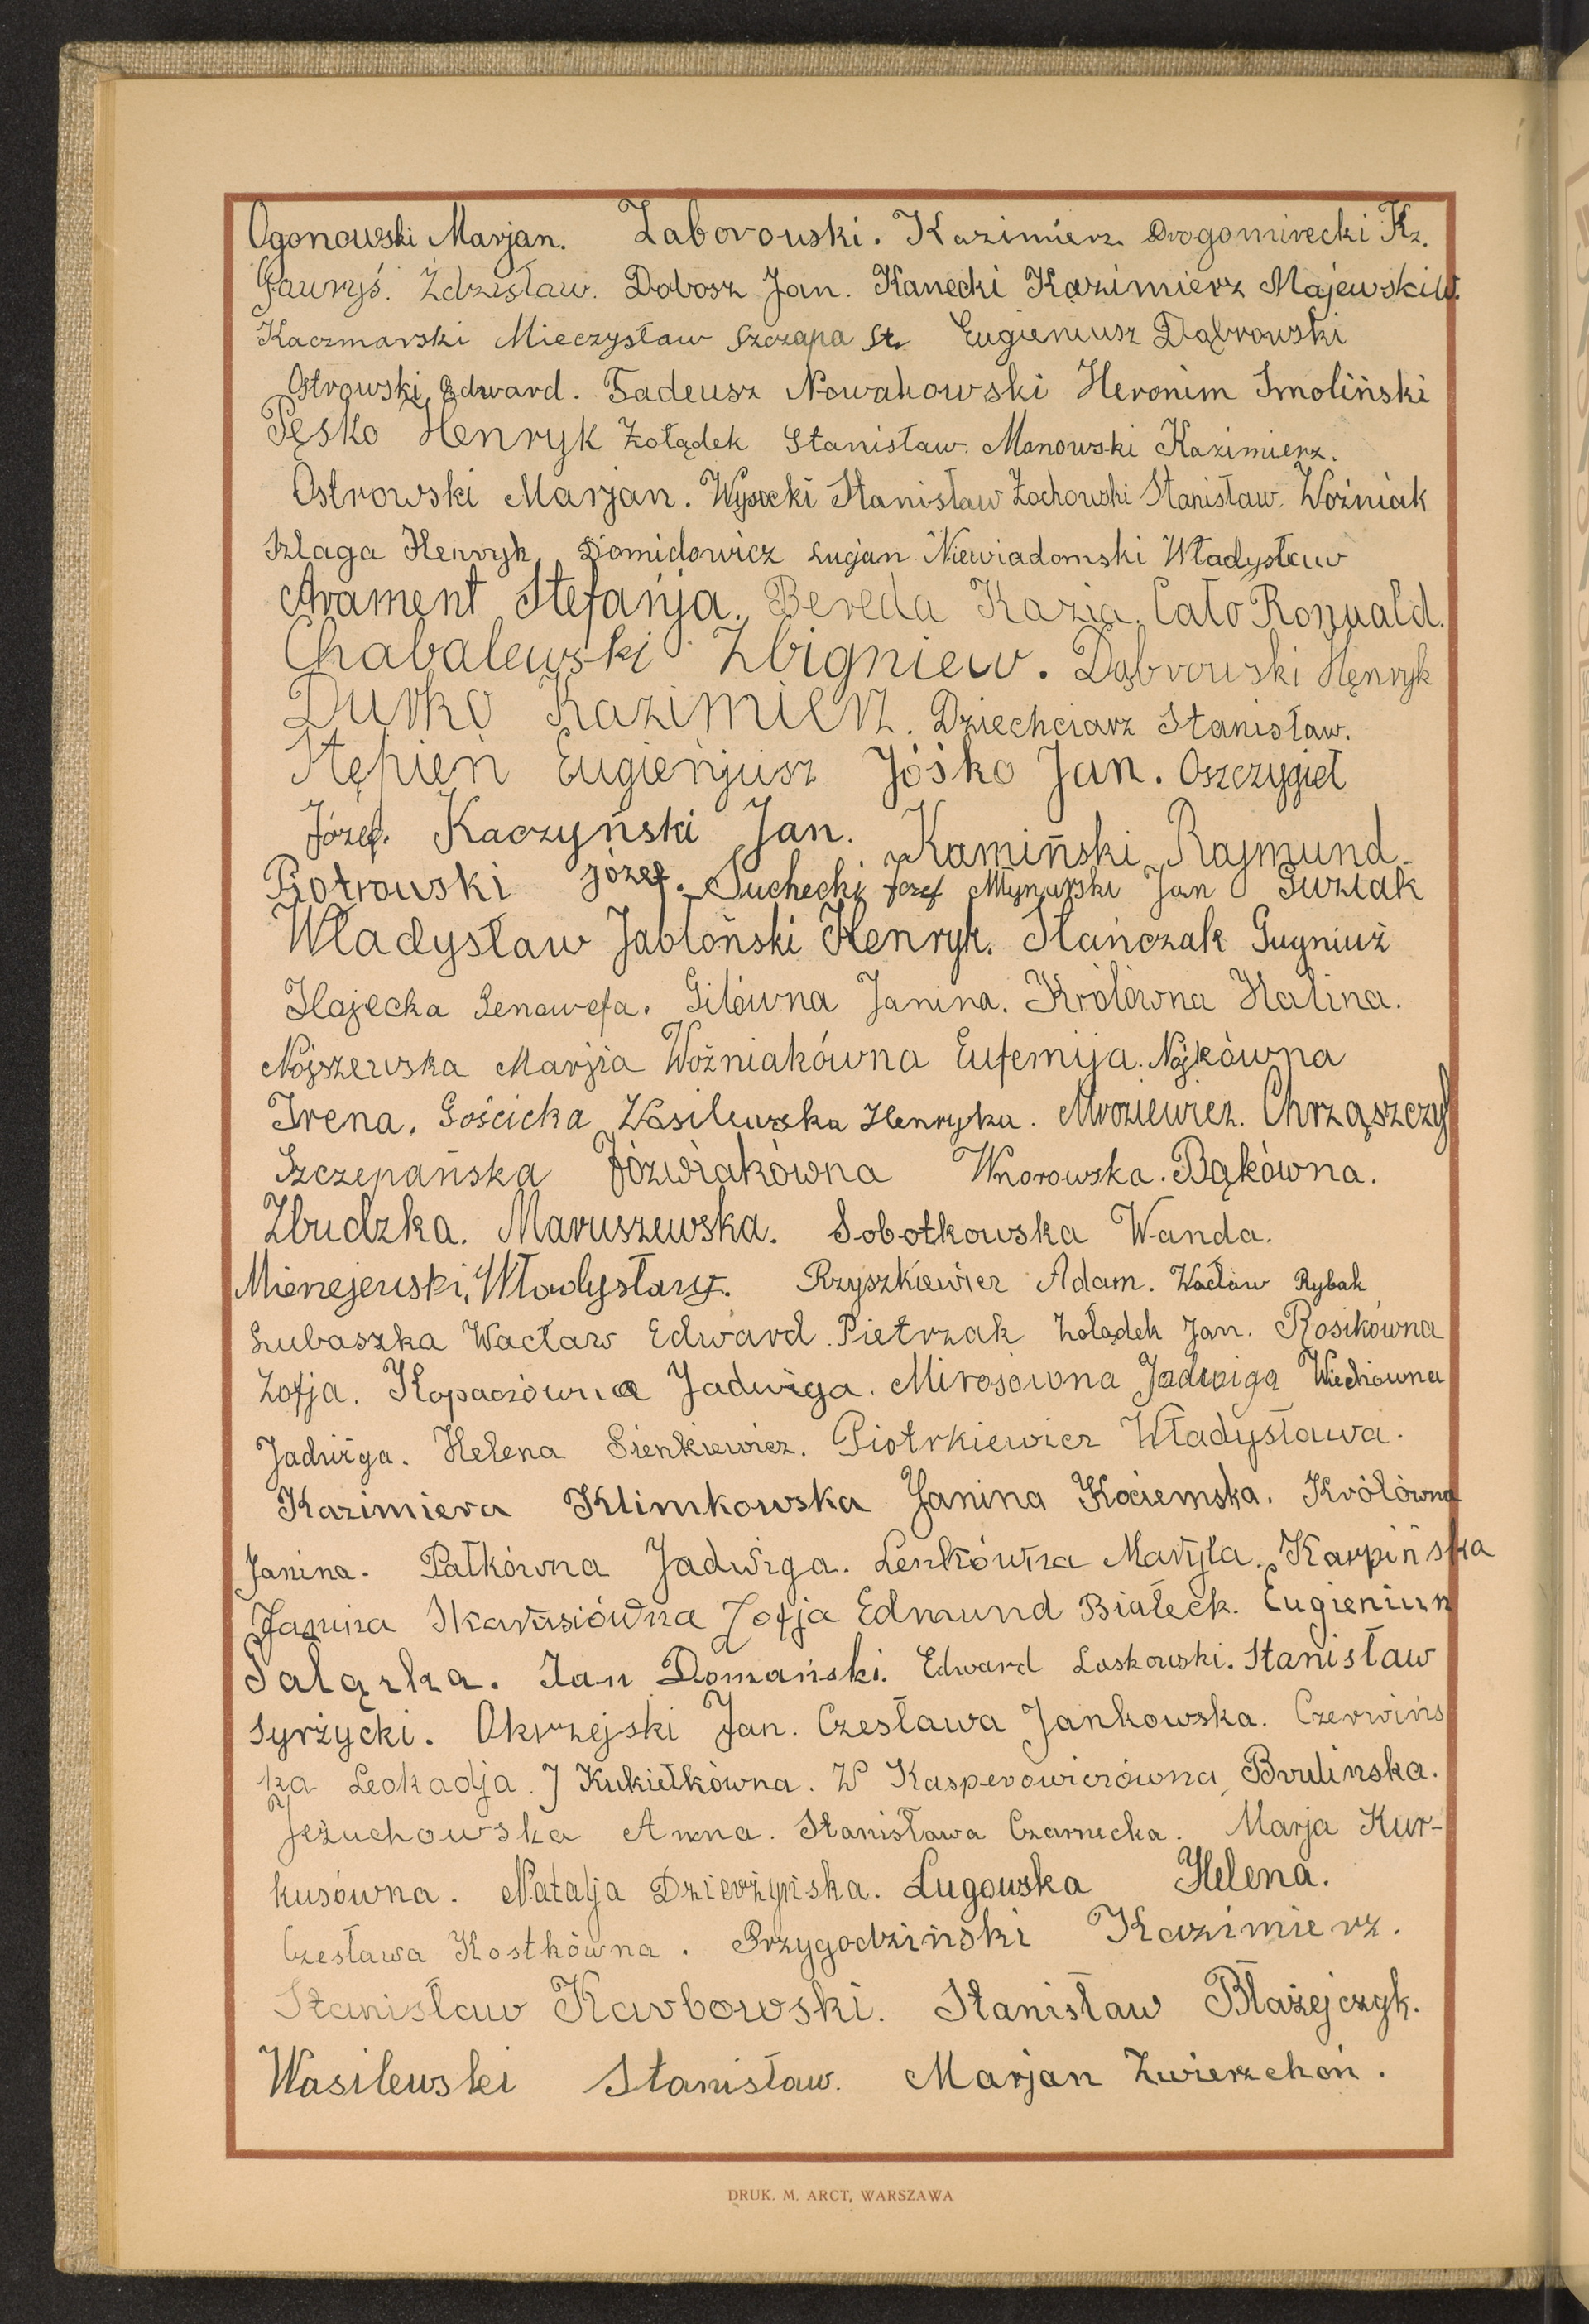 Ogonowski Marjan. Zaborowski. Kazimierz. Drogomirecki Kz.
Gauryś. Zdzisław. Dobosz Jan. Kanecki Kazimierz Majewski W.
Kaczmarski Mieczysław Szczapa St. Eugieniusz Dąbrowski
Ostrowski Edward. Tadeusz Nowakowski Heronim Smoliński
Pęsko Henryk Żołądek Stanisław. Manowski Kazimierz.
Ostrowski Marjan. Wysocki Stanisław Żochowski Stanisław. Woźniak
Szlaga Henryk Domidowicz Lucjan Niewiadomski Władysław
Arament Stefańja. Bereda Kazia. Cało Romuald.
Chabalewski Zbigniew. Dąbrowski Henryk
Durko Kazimierz. Dziechciarz Stanisław.
Stępień Eugienjusz Jóśko Jan. Oszczygieł
Józef. Kaczyński Jan. Kamiński Rajmund.
Piotrowski józef. Suchecki Józef Młynarski Jan Guziak
Władysław Jabłoński Henryk. Stańczak Gugniuż
Hajecka Genowefa. Gilówna Janina. Królówna Halina.
Nojszewska Marjia Woźniakówna Eufemija. Nojkówna
Irena. Gościcka Wasilewska Henryka. Mroziewicz. Chrząszczyf
Szczepańska Józwiakówna Wnorowska. Bąkówna.
Zbudzka. Maruszewska. Sobotkowska Wanda.
Mienejewski, Włodysław. Rzyszkiewicz Adam. Wacław Rybak
Lubaszka Wacław Edward Pietrzak Żołądek Jan. Rosikówna
Zofja. Kopaczówna Jadwiga. Mirosówna Jadwiga Wiechówna
Jadwiga. Helena Sienkiewicz. Piotrkiewicz Władysława.
Kazimiera Klimkowska Janina Kociemska. Królówna
Janina. Pałkówna Jadwiga. Lenkówna Maryla. Karpińska
Janina Skarusiówna Zofja Edmund Białeck. Eugieniun
Sałązka. Jan Domański. Edward Laskowski. Stanisław
Syrżycki. Okrzejski Jan. Czesława Jankowska. Czerwińs
ka Leokadja. J Kukiełkówna. W Kasperowiczówna, Brulinska.
Jeżuchowska Anna. Stanisława Czarnecka. Marja Kur-
kusówna. Natalja Dzierżyńska. Ługowska Helena.
Czesława Kostkówna. Przygodziński Kazimierz.
Stanisław Karbowski. Stanisław Błażejczyk.
Wasilewski Stanisław. Marjan Zwierzchoń.
DRUK. M. ARCT, WARSZAWA